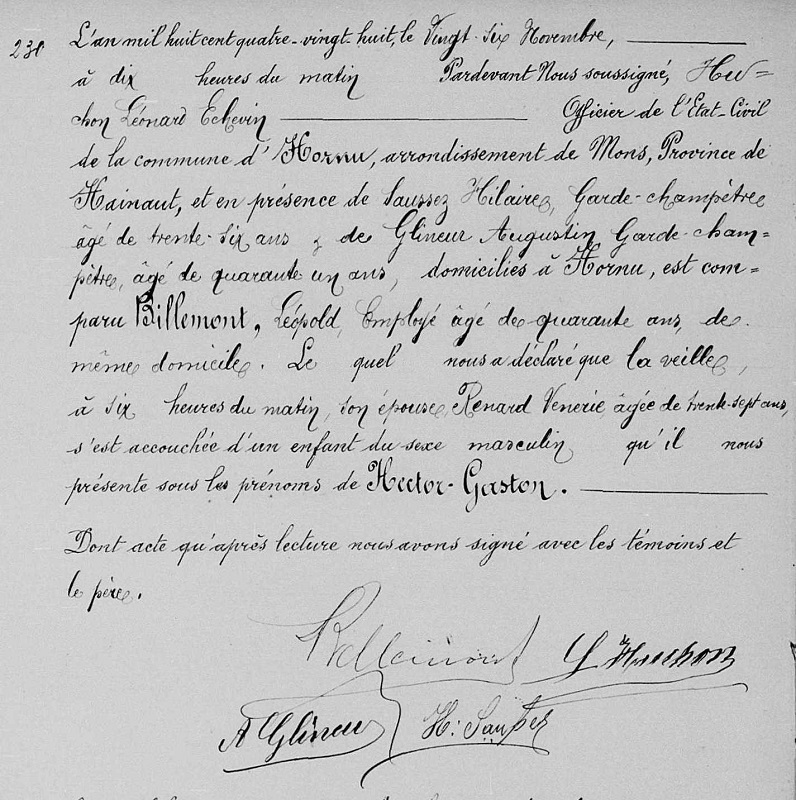 L'an mil huit cent quatre-vingt-huit, le Vingt-Six Novembre,
à dix heures du matin Pardevant Nous soussigné, Hu=
chon Léonard Echevin Officier de l'Etat-Civil
de la commune d'Hornu, arrondissement de Mons, Province de
Hainaut, et en présence de Saussez Hilaire, Garde-champêtre
âgé de trente-six ans & de Glineur Augustin Garde-cham=
pêtre, âgé de quarante un ans, domiciliés à Hornu, est com=
paru Billemont, Léopold, Employé âgé de quarante ans, de
même domicile. Le quel nous a déclaré que la veille,
à six heures du matin, son épouse, Renard Venerie, âgée de trente-sept ans,
s'est accouchée d'un enfant du sexe masculin qu'il nous
présente sous les prénoms de Hector-Gaston.
Dont acte qu'après lecture nous avons signé avec les témoins et
le père.
Billemont L Huchon
A Glineur H: Saussez